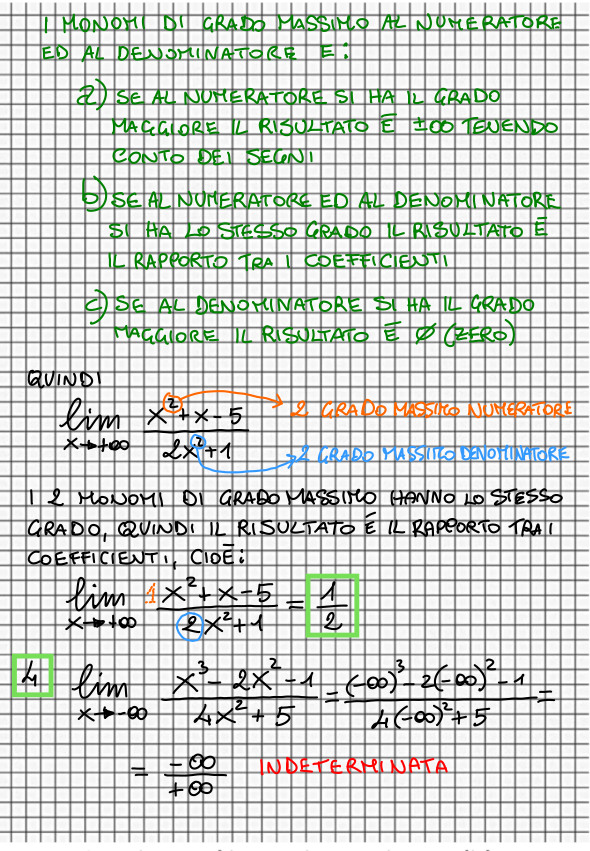 I MONOMI DI GRADO MASSIMO AL NUMERATORE
ED AL DENOMINATORE E:
a) SE AL NUMERATORE SI HA IL GRADO
MAGGIORE IL RISULTATO È ±∞ TENENDO
CONTO DEI SEGNI
b) SE AL NUMERATORE ED AL DENOMINATORE
SI HA LO STESSO GRADO IL RISULTATO È
IL RAPPORTO TRA I COEFFICIENTI
c) SE AL DENOMINATORE SI HA IL GRADO
MAGGIORE IL RISULTATO È Ø (ZERO)
QUINDI
lim x→+∞ (x²+x-5)/(2x²+1)
2 GRADO MASSIMO NUMERATORE
2 GRADO MASSIMO DENOMINATORE
I 2 MONOMI DI GRADO MASSIMO HANNO LO STESSO
GRADO, QUINDI IL RISULTATO È IL RAPPORTO TRA I
COEFFICIENTI, CIOÈ:
lim x→+∞ (1x²+x-5)/(2x²+1) = 1/2
4 lim x→-∞ (x³-2x²-1)/(4x²+5) = ((-∞)³-2(-∞)²-1)/(4(-∞)²+5) =
= -∞/+∞ INDETERMINATA